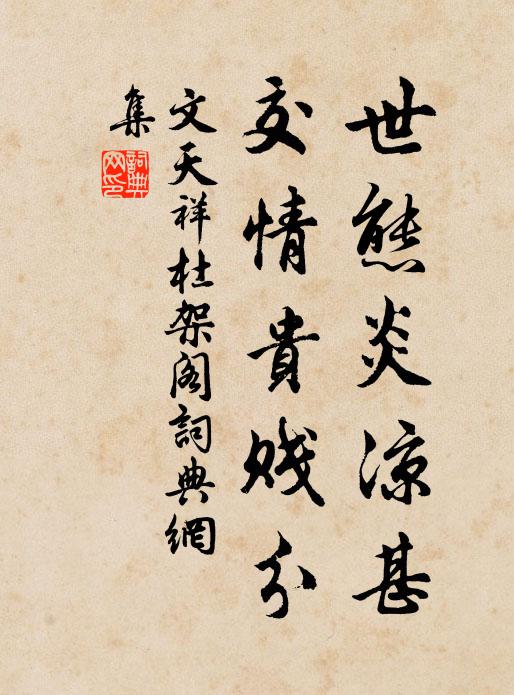 世態炎涼甚
交情貴賤分
文天祥杜架閣詞典網
集
詞典
网印